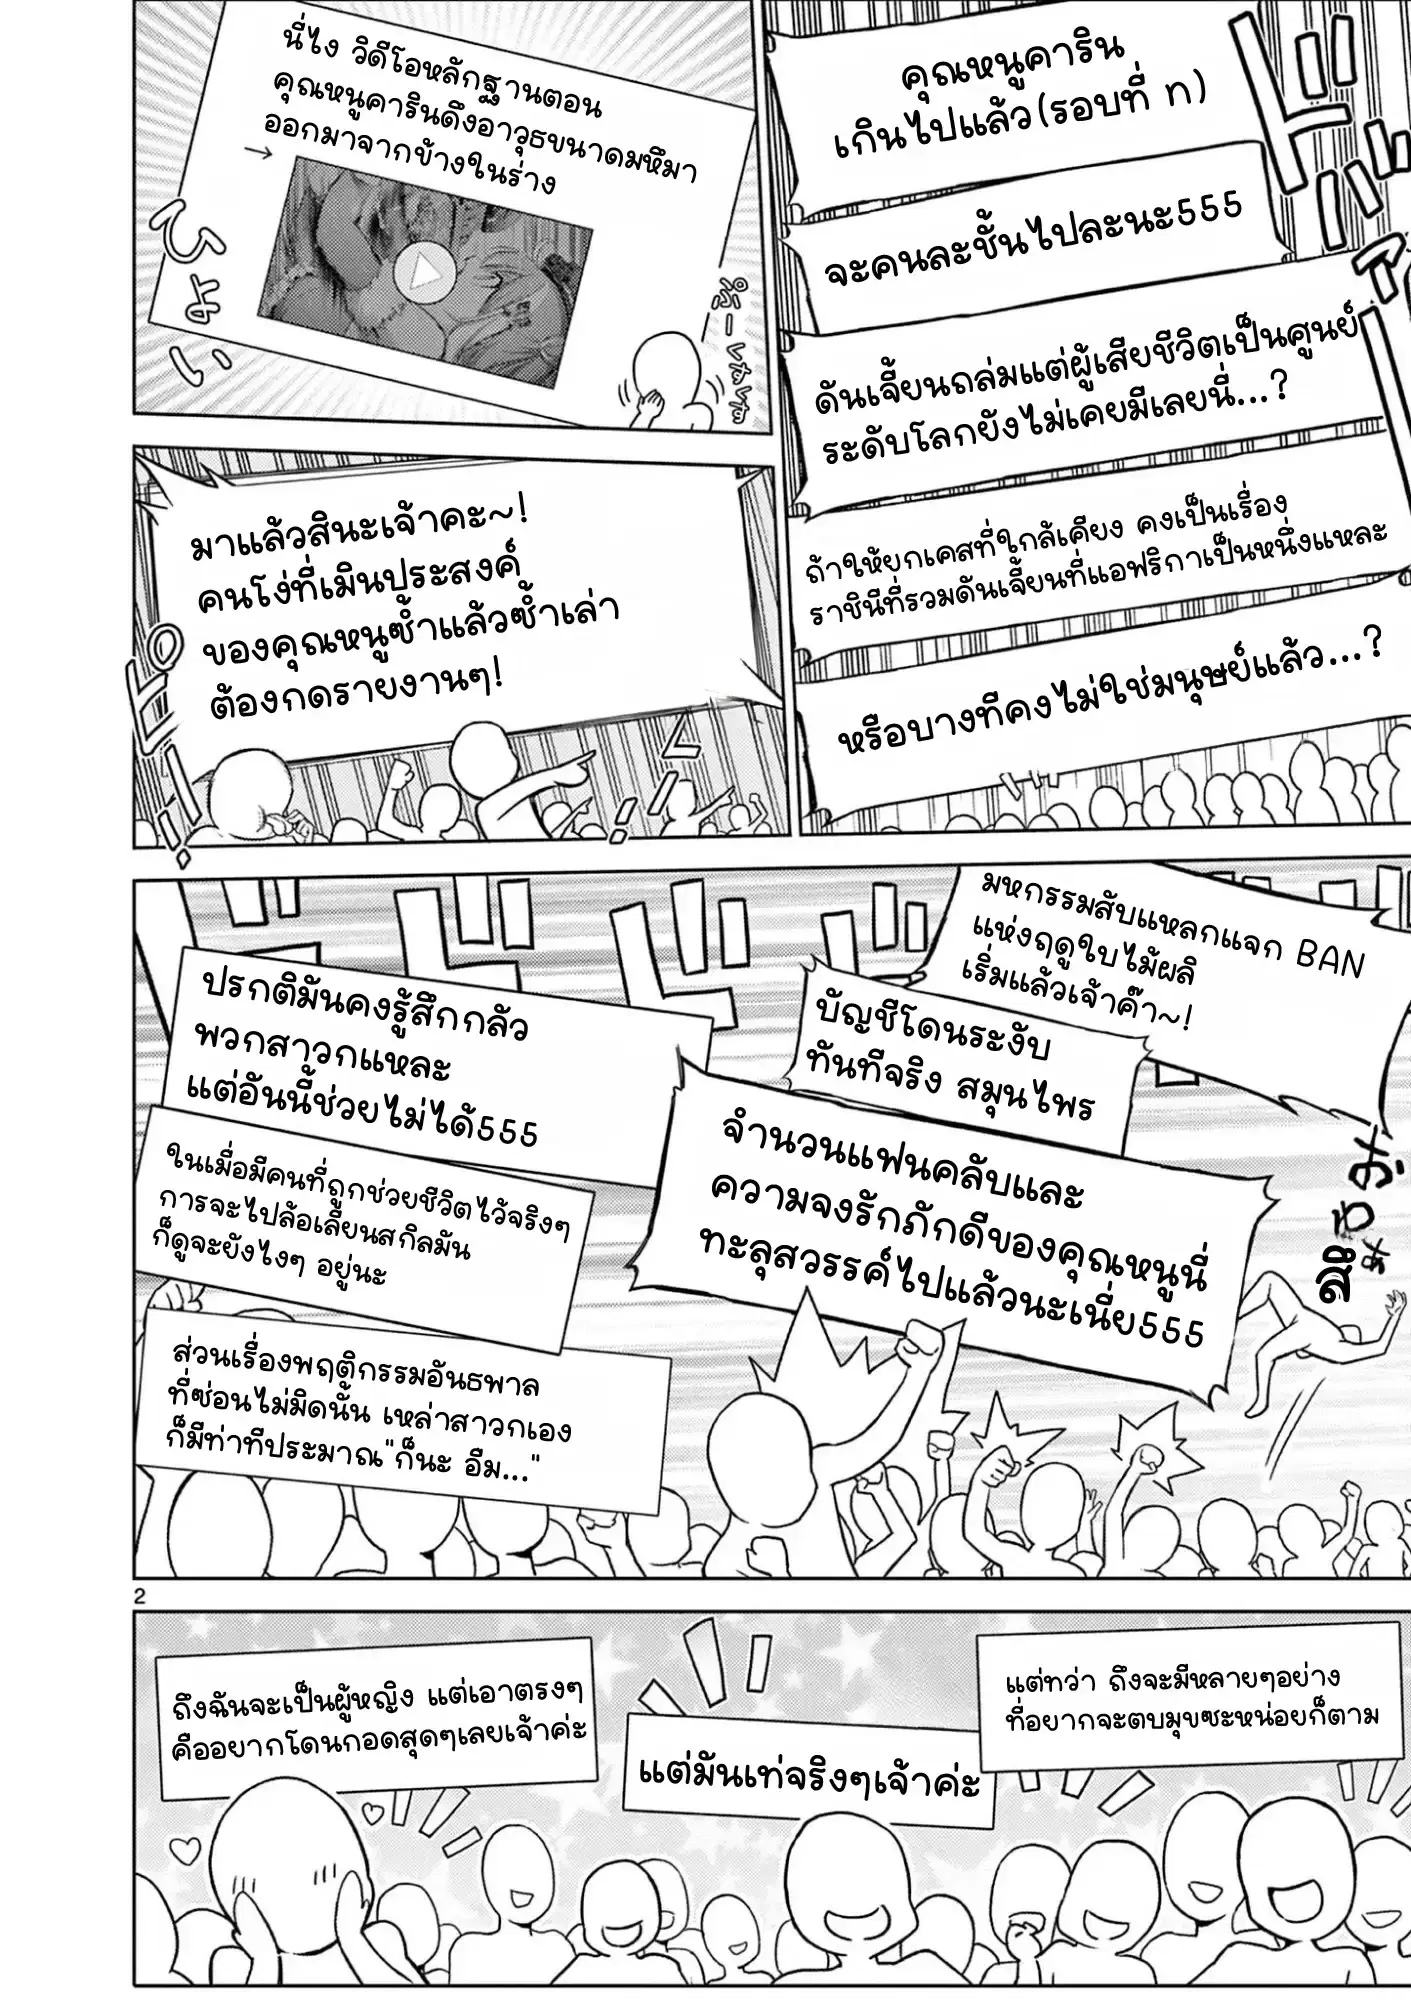 คุณหนูคาริน
เกินไปแล้ว(รอบที่ n)
จะคนละชั้นไปละนะ555
ดันเจี้ยนถล่มแต่ผู้เสียชีวิตเป็นศูนย์
ระดับโลกยังไม่เคยมีเลยนี่...?
ถ้าให้ยกเคสที่ใกล้เคียง คงเป็นเรื่อง
ราชินีที่รวมดันเจี้ยนที่แอฟริกาเป็นหนึ่งแหละ
หรือบางทีคงไม่ใช่มนุษย์แล้ว...?
นี่ไง วิดีโอหลักฐานตอน
คุณหนูคารินดึงอาวุธขนาดมหึมา
ออกมาจากข้างในร่าง
→
ひょい
ぷーくすくす
มาแล้วสินะเจ้าคะ~!
คนโง่ที่เมินประสงค์
ของคุณหนูซ้ำแล้วซ้ำเล่า
ต้องกดรายงานๆ!
ピピーッ!
มหกรรมสับแหลกแจก BAN
แห่งฤดูใบไม้ผลิ
เริ่มแล้วเจ้าค๊า~!
บัญชีโดนระงับ
ทันทีจริง สมุนไพร
จำนวนแฟนคลับและ
ความจงรักภักดีของคุณหนูนี่
ทะลุสวรรค์ไปแล้วนะเนี่ย555
ปรกติมันคงรู้สึกกลัว
พวกสาวกแหละ
แต่อันนี้ช่วยไม่ได้555
ในเมื่อมีคนที่ถูกช่วยชีวิตไว้จริงๆ
การจะไปล้อเลียนสกิลมัน
ก็ดูจะยังไงๆ อยู่นะ
ส่วนเรื่องพฤติกรรมอันธพาล
ที่ซ่อนไม่มิดนั้น เหล่าสาวกเอง
ก็มีท่าทีประมาณ"ก็นะ อืม..."
2
แต่ทว่า ถึงจะมีหลายๆอย่าง
ที่อยากจะตบมุขซะหน่อยก็ตาม
แต่มันเท่จริงๆเจ้าค่ะ
ถึงฉันจะเป็นผู้หญิง แต่เอาตรงๆ
คืออยากโดนกอดสุดๆเลยเจ้าค่ะ